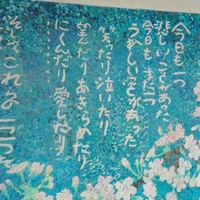 今日も一つ
悲しいことがあった
今日もまた一つ
うれしいことがあった
笑ったり泣いたり
望んだりあきらめたり
にくんだり愛したり
そしてこれらの一つ一つ